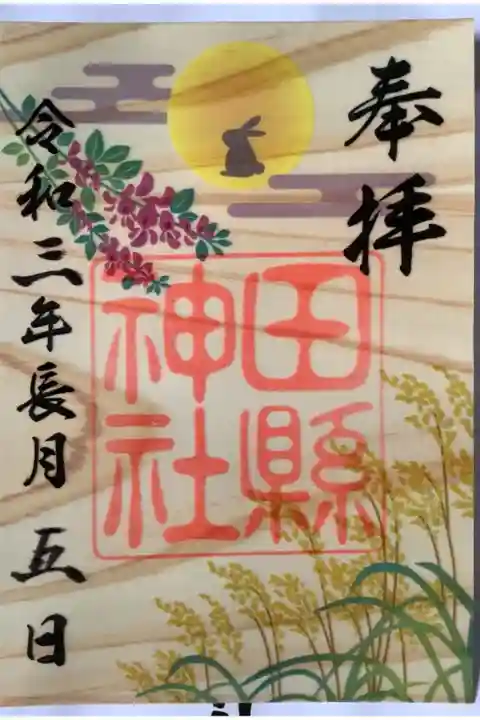 奉拝
田縣
神社
令和三年長月五日